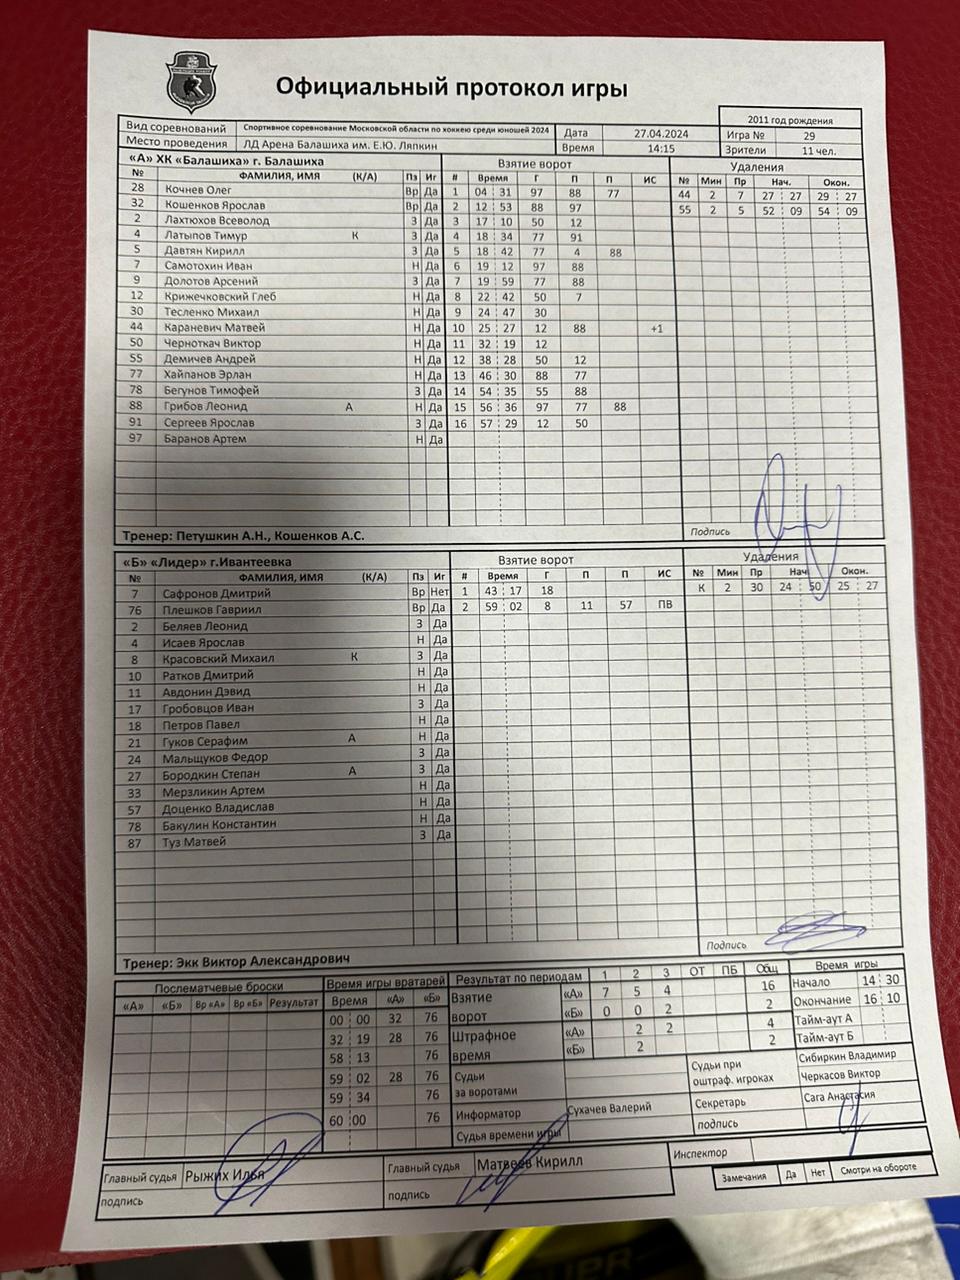 Официальный протокол игры
2011 год рождения
Вид соревнований Спортивное соревнование Московской области по хоккею среди юношей 2024 Дата 27.04.2024 Игра № 29
Место проведения ЛД Арена Балашиха им. Е.Ю. Ляпкин Время 14:15 Зрители 11 чел.
«А» ХК «Балашиха» г. Балашиха Взятие ворот Удаления
№ ФАМИЛИЯ, ИМЯ (К/А) Пз Иг # Время Г П П ИС № Мин Пр Нач. Окон.
28 Кочнев Олег Вр Да 1 04 31 97 88 77 44 2 7 27 27 29 27
32 Кошенков Ярослав Вр Да 2 12 53 88 97 55 2 5 52 09 54 09
2 Лахтюхов Всеволод З Да 3 17 10 50 12
4 Латыпов Тимур К З Да 4 18 34 77 91
5 Давтян Кирилл З Да 5 18 42 77 4 88
7 Самотохин Иван Н Да 6 19 12 97 88
9 Долотов Арсений З Да 7 19 59 77 88
12 Крижечковский Глеб Н Да 8 22 42 50 7
30 Тесленко Михаил Н Да 9 24 47 30
44 Караневич Матвей Н Да 10 25 27 12 88 +1
50 Черноткач Виктор Н Да 11 32 19 12
55 Демичев Андрей Н Да 12 38 28 50 12
77 Хайпанов Эрлан Н Да 13 46 30 88 77
78 Бегунов Тимофей З Да 14 54 35 55 88
88 Грибов Леонид А Н Да 15 56 36 97 77 88
91 Сергеев Ярослав З Да 16 57 29 12 50
97 Баранов Артем Н Да
Тренер: Петушкин А.Н., Кошенков А.С. Подпись
«Б» «Лидер» г.Ивантеевка Взятие ворот Удаления
№ ФАМИЛИЯ, ИМЯ (К/А) Пз Иг # Время Г П П ИС № Мин Пр Нач. Окон.
7 Сафронов Дмитрий Вр Нет 1 43 17 18 К 2 30 24 50 25 27
76 Плешков Гавриил Вр Да 2 59 02 8 11 57 ПВ
2 Беляев Леонид З Да
4 Исаев Ярослав Н Да
8 Красовский Михаил К З Да
10 Ратков Дмитрий Н Да
11 Авдонин Дэвид Н Да
17 Гробовцов Иван З Да
18 Петров Павел Н Да
21 Гуков Серафим А Н Да
24 Мальщуков Федор З Да
27 Бородкин Степан А З Да
33 Мерзликин Артем Н Да
57 Доценко Владислав Н Да
78 Бакулин Константин Н Да
87 Туз Матвей З Да
Тренер: Экк Виктор Александрович Подпись
Послематчевые броски Время игры вратарей Результат по периодам 1 2 3 ОТ ПБ Общ Время игры
«А» «Б» Вр «А» Вр «Б» Результат Время «А» «Б» Взятие ворот «А» 7 5 4 16 Начало 14 30
00 00 32 76 «Б» 0 0 2 2 Окончание 16 10
32 19 28 76 Штрафное время «А» 2 2 4 Тайм-аут А
58 13 76 «Б» 2 2 Тайм-аут Б
59 02 28 76 Судьи за воротами Судьи при оштраф. игроках Сибиркин Владимир
59 34 76 Черкасов Виктор
60 00 76 Информатор Сухачев Валерий Секретарь Сага Анастасия
Судья времени игры подпись
Главный судья Рыжих Илья Главный судья Матвеев Кирилл Инспектор
подпись подпись Замечания Да Нет Смотри на обороте